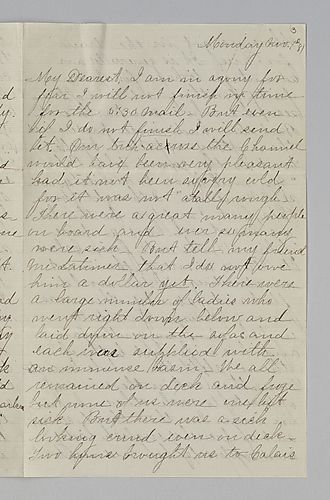 3
Monday Nov. 7th
My Dearest, I am in agony for
fear I will not finish in time
for the 5.30 mail. But even
if I do not finish I will send
it. Our trip across the Channel
would have been very pleasant
had it not been so very cold,
for it was not "atall" rough.
There were a great many people
on board and ever so many
were sick. But tell my friend
Mr Latimer that I do not owe
him a dollar yet. There were
a large number of ladies who
went right down below and
laid down on the sofas and
each was supplied with
an immense basin. We all
remained on deck and froze
but none of us were
sick. But there was a sick
looking crowd even on deck.
Two hours brought us to Calais